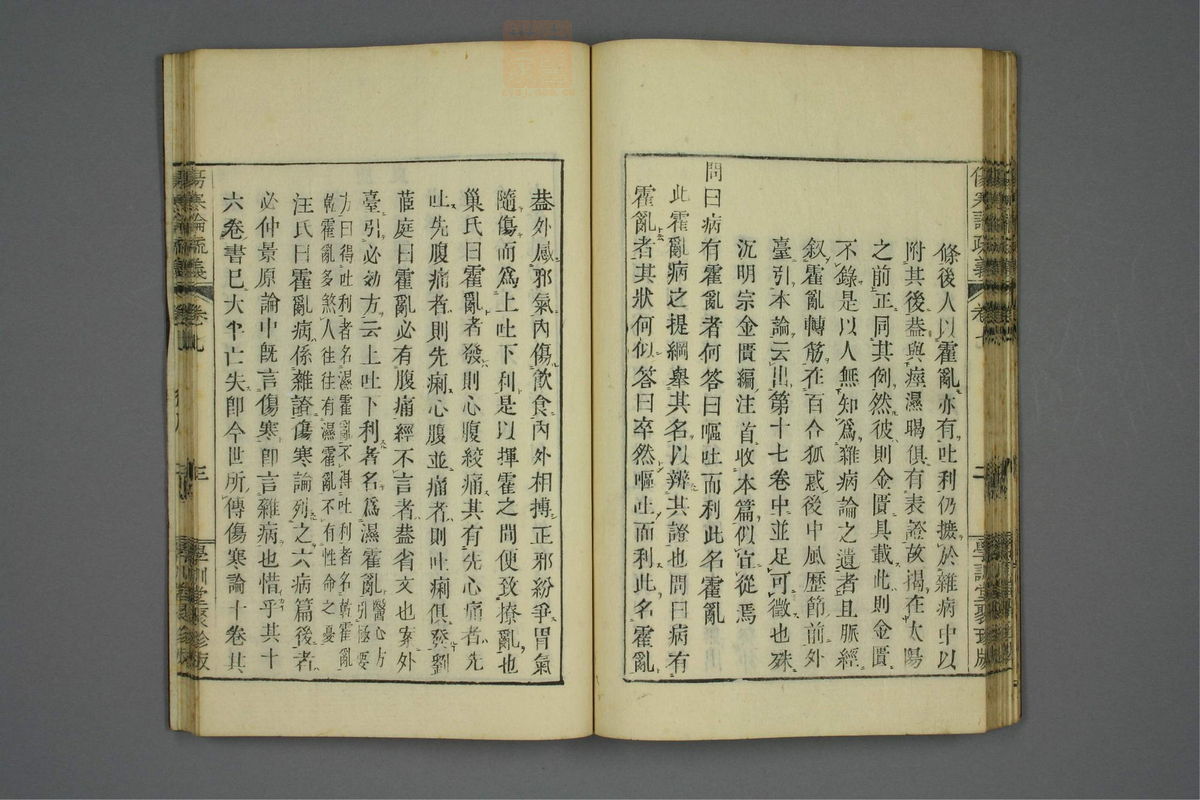 條後人以霍亂亦有吐利仍擴於雜病中以
附其後葢與痙濕暍俱有表證故揭在太陽
之前正同其例然彼則金匱具載此則金匱
不錄是以人無知爲雜病論之遺者且脈經
叙霍亂轉筋在百合狐惑後中風歷節前外
臺引本論云出第十七卷中並足可徵也殊
沉明宗金匱編注首收本篇似宜從焉
問曰病有霍亂者何答曰嘔吐而利此名霍亂
此霍亂病之提綱舉其名以辨其證也問曰病有
霍亂者其狀何似答曰卒然嘔吐而利此名霍亂
葢外感邪氣內傷飲食內外相搏正邪紛爭胃氣
隨傷而爲上吐下利是以揮霍之間便致撩亂也
巢氏曰霍亂者發則心腹絞痛其有先心痛者先
吐先腹痛者則先痢心腹並痛者則吐痢俱發劉
茝庭曰霍亂必有腹痛經不言者葢省文也案外
臺引必効方云上吐下利者名爲濕霍亂醫心方引極要
方曰得吐利者名濕霍亂不得吐利者名乾霍亂
乾霍亂多煞人往往有濕霍亂不有性命之憂
汪氏曰霍亂病係雜證傷寒論列之六病篇後者
必仲景原論中旣言傷寒卽言雜病也惜乎其十
六卷書已大半亡失卽今世所傳傷寒論十卷其
傷寒論疏義
卷七
三
學訓堂聚珍版